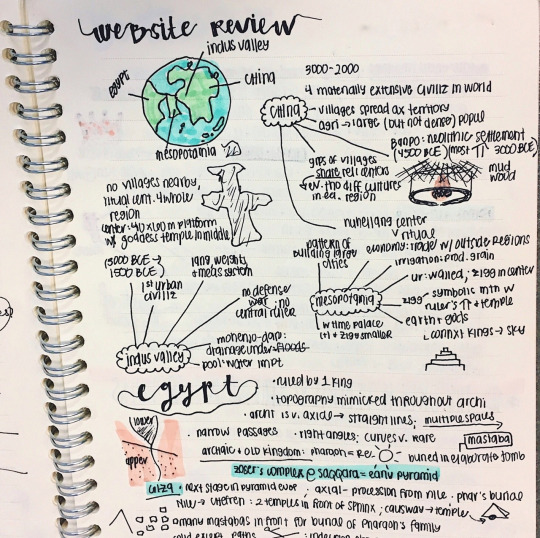 website review
indus valley
egypt
china
mesopotamia
3000-2000
4 materially extensive civiliz in world
china
villages spread ax territory
agri → large (but not dense) popul
Banpo: neolithic settlement
(4500 BCE) (most ↑↑ 3000 BCE)
grps of villages
share reli centers
↳ ev. tho diff cultures
in ea. region
mud
wood
niuheliang center
↳ ritual
no villages nearby,
ritual cent. 4 whole
region
center: 40x60m platform
w/ goddess temple in middle
(3000 BCE →
1500 BCE)
1st urban
civiliz
lang, weights
+ meas system
no defense
no
central ruler
mohenjo-daro:
drainage under floods
pool: water impt
indus valley
pattern of
building large
cities
economy: trade w/ outside regions
irrigation: prod. grain
ur: walled, zigg in center
mesopotamia
zigg
symbolic mtn w
ruler's ↑↑ + temple
earth + gods
connxt kings → sky
w time palace
(↑) + zigg smaller
egypt
• ruled by 1 king
• topography mimicked throughout archi
• archi is v. axial → straight lines, multiple spaces
• narrow passages • right angles; curves v. rare
mastaba
lower
upper
archaic + old kingdom: pharaoh = rel.
buried in elaborate tomb
zoser's complex @ saqqara = early pyramid
giza • next stage in pyramid evol ; axial - procession from nile • phar's burial
nile → chefren: 2 temples in front of sphinx ; causway → temple
many mastabas in front for burial of pharaoh's family
solid except paths